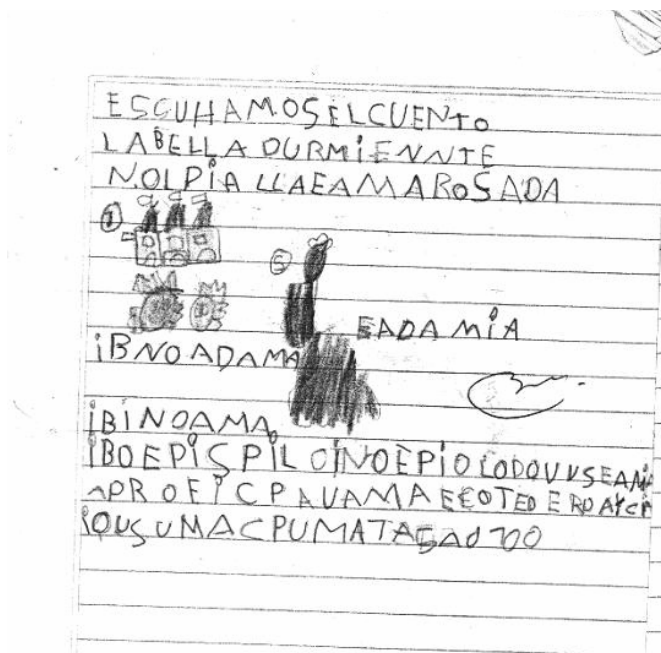 ESCUHAMOS EL CUENTO
LA BELLA DURMiENNTE
NOLPiA LLAEAMAROSADA
1
5
EADA MiA
iBNOADAMA
iBiNOAMA
iBOEPiSPiLCiNOEPiOLODOVUSEAMA
APROFiCPAUAMAECOTEDERDAYCP
iOUSUMACPUMATASAOTOO